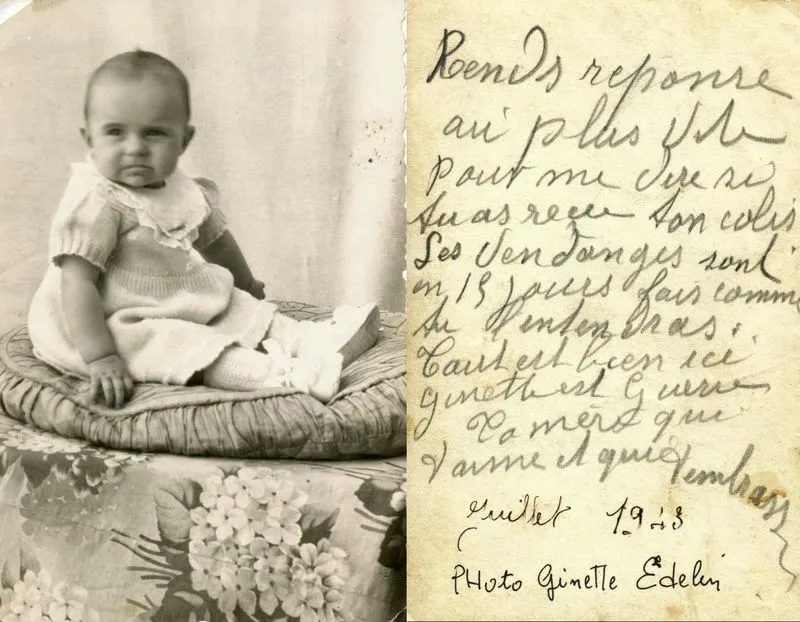 Rends reponse
au plus vite
pour me dire si
tu as reçu ton colis
Les Vendanges sont
en 15 jours fais comme
tu l'entendras.
Tout est bien ici
Ginette est Guerie
Ta mère qui
t'aime et qui t'embrasse
Juillet 1943
PHoto Ginette Edelin